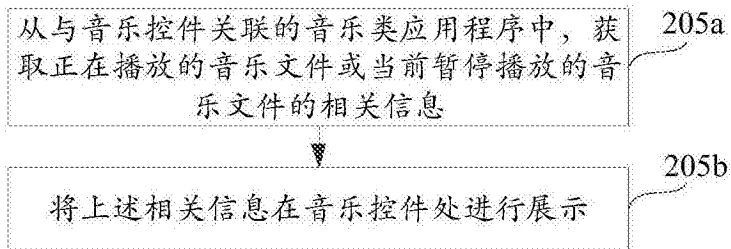 从与音乐控件关联的音乐类应用程序中，获
取正在播放的音乐文件或当前暂停播放的音
乐文件的相关信息
205a
将上述相关信息在音乐控件处进行展示
205b